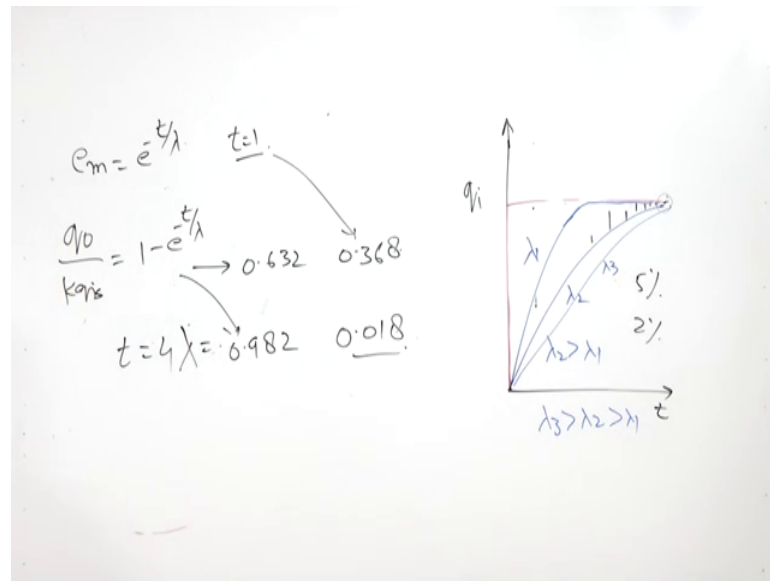 em = e^-t/λ t=1.
q0/kqis = 1 - e^-t/λ → 0.632 0.368
t = 4λ = 0.982 0.018
qi
λ1
λ2
λ3
λ2 > λ1
5%.
2%
t
λ3 > λ2 > λ1